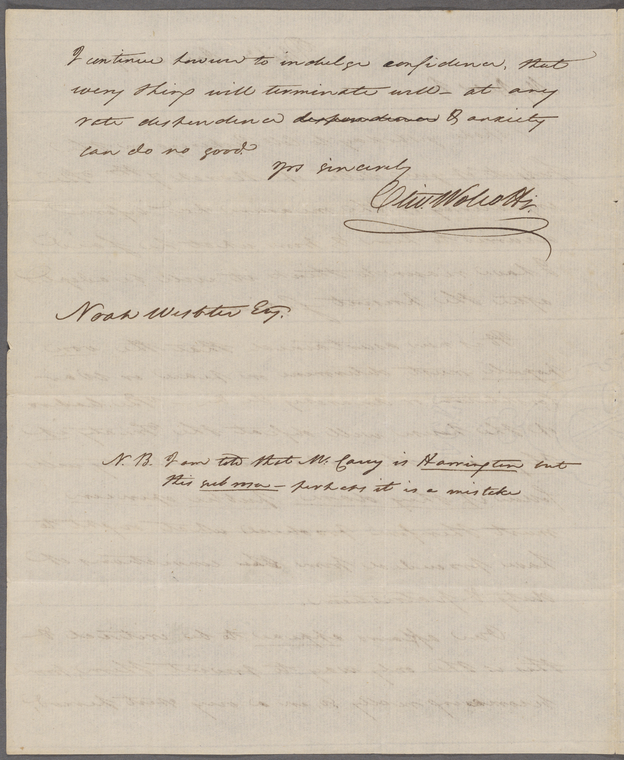 I continue however to indulge confidence, that
every thing will terminate well – at any
rate dispondence & anxiety
can do no good.
Yrs sincerely
Oliv. Wolcott Jr.
Noah Webster Esq.
N.B. I am told that Mr. Carey is Harrington but
this sub rosa – perhaps it is a mistake